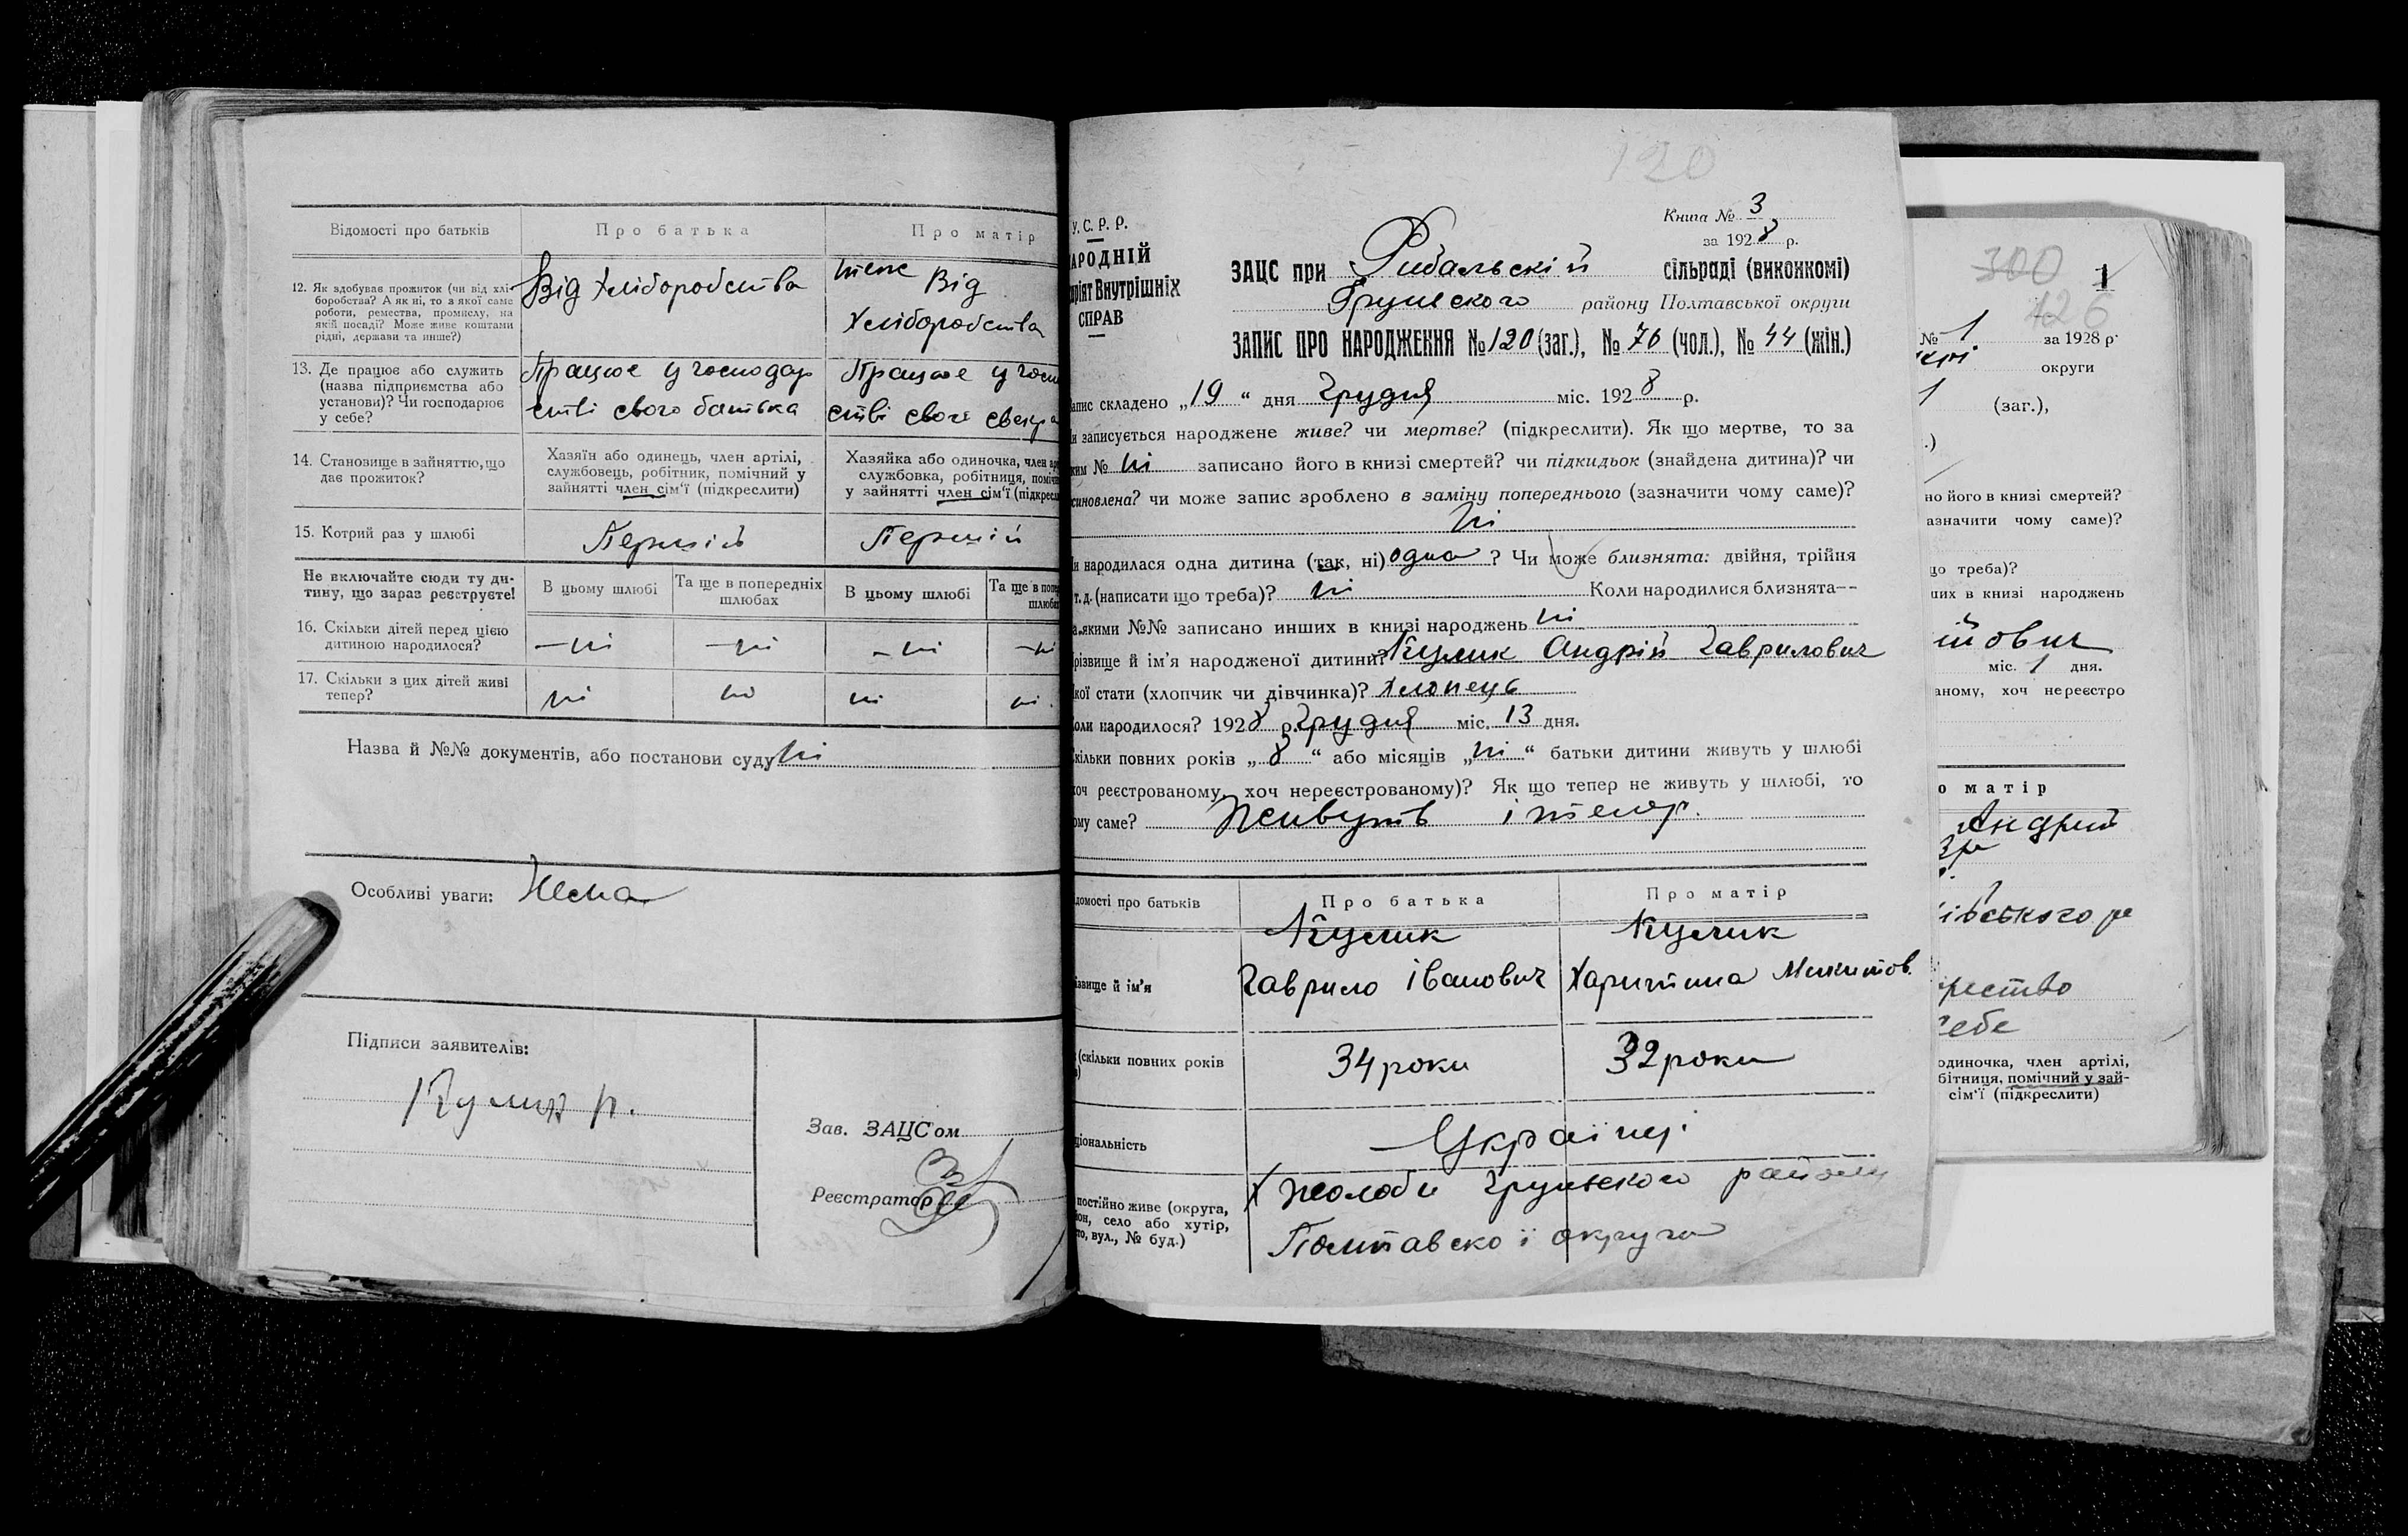 Відомості про батьків
Про батька
Про матір
12. Як здобував прожиток (чи від хлі-
боробства? А як ні, то з якої саме
роботи, ремества, промислу, на
якій посаді? Може живе коштами
рідні, держави та инше?)
Від Хліборобства
теж Від
Хліборобства
13. Де працює або служить
(назва підприємства або
установи)? Чи господарює
у себе?
Працює у господар
стві свого батька
Працює у госп
стві свого свекра
14. Становище в зайняттю, що
дає прожиток?
Хазяїн або одинець, член артілі,
службовець, робітник, помічний у
зайнятті член сім'ї (підкреслити)
Хазяйка або одиночка, член ар
службовка, робітниця, поміч
у зайнятті член сім'ї (підкресл
15. Котрий раз у шлюбі
Перший
Перший
Не включайте сюди ту ди-
тину, що зараз реєструєте!
В цьому шлюбі
Та ще в попередніх
шлюбах
В цьому шлюбі
Та ще в попе
шлюбах
16. Скільки дітей перед цією
дитиною народилося?
—ні —ні —ні —ні
17. Скільки з цих дітей живі
тепер?
ні ні ні ні.
Назва й №№ документів, або постанови суду ні
Особливі уваги: Нема
Підписи заявителів:
Кулик
Зав. ЗАЦС'ом
Реєстратор
120
У.С.Р.Р.
АРОДНІЙ
аріят Внутрішніх
СПРАВ
Книга № 3
за 1928 р.
ЗАЦС при Рибальскій сільраді (виконкомі)
Грунського району Полтавської округи
ЗАПИС ПРО НАРОДЖЕННЯ № 120 (заг.), № 76 (чол.), № 44 (жін.)
Запис складено „19“ дня Грудня міс. 1928 р.
и записується народжене живе? чи мертве? (підкреслити). Як що мертве, то за
яким № ні записано його в книзі смертей? чи підкидьок (знайдена дитина)? чи
синовлена? чи може запис зроблено в заміну попереднього (зазначити чому саме)?
ні
и народилася одна дитина (так, ні) одна? Чи може близнята: двійня, трійня
т. д. (написати що треба)? ні Коли народилися близнята—
а якими №№ записано инших в книзі народжень ні
різвище й ім'я народженої дитини? Кулик Андрій Гаврилович
кої стати (хлопчик чи дівчинка)? Хлопець
оли народилося? 1928 р. Грудня міс. 13 дня.
кільки повних років „8“ або місяців „ні“ батьки дитини живуть у шлюбі
хоч реєстрованому, хоч нереєстрованому)? Як що тепер не живуть у шлюбі, то
ому саме? Живуть і тепер.
домості про батьків
Про батька
Про матір
ізвище й ім'я
Кулик
Гаврило Іванович
Кулик
Харитина Микитов.
(скільки повних років
34 роки
32 роки
ціональність
Українці
постійно живе (округа,
йон, село або хутір,
то, вул., № буд.)
х Жолоби Грунського району
Полтавскої округи
300
1
126
№ 1 за 1928 р.
округи
1 (заг.),
.)
но його в книзі смертей?
азначити чому саме)?
що треба)?
ших в книзі народжень
йович
міс. 1 дня.
аному, хоч нереєстро
о матір
Андрій
івського р
рество
себе
одиночка, член артілі,
бітниця, помічний у зай-
сім'ї (підкреслити)